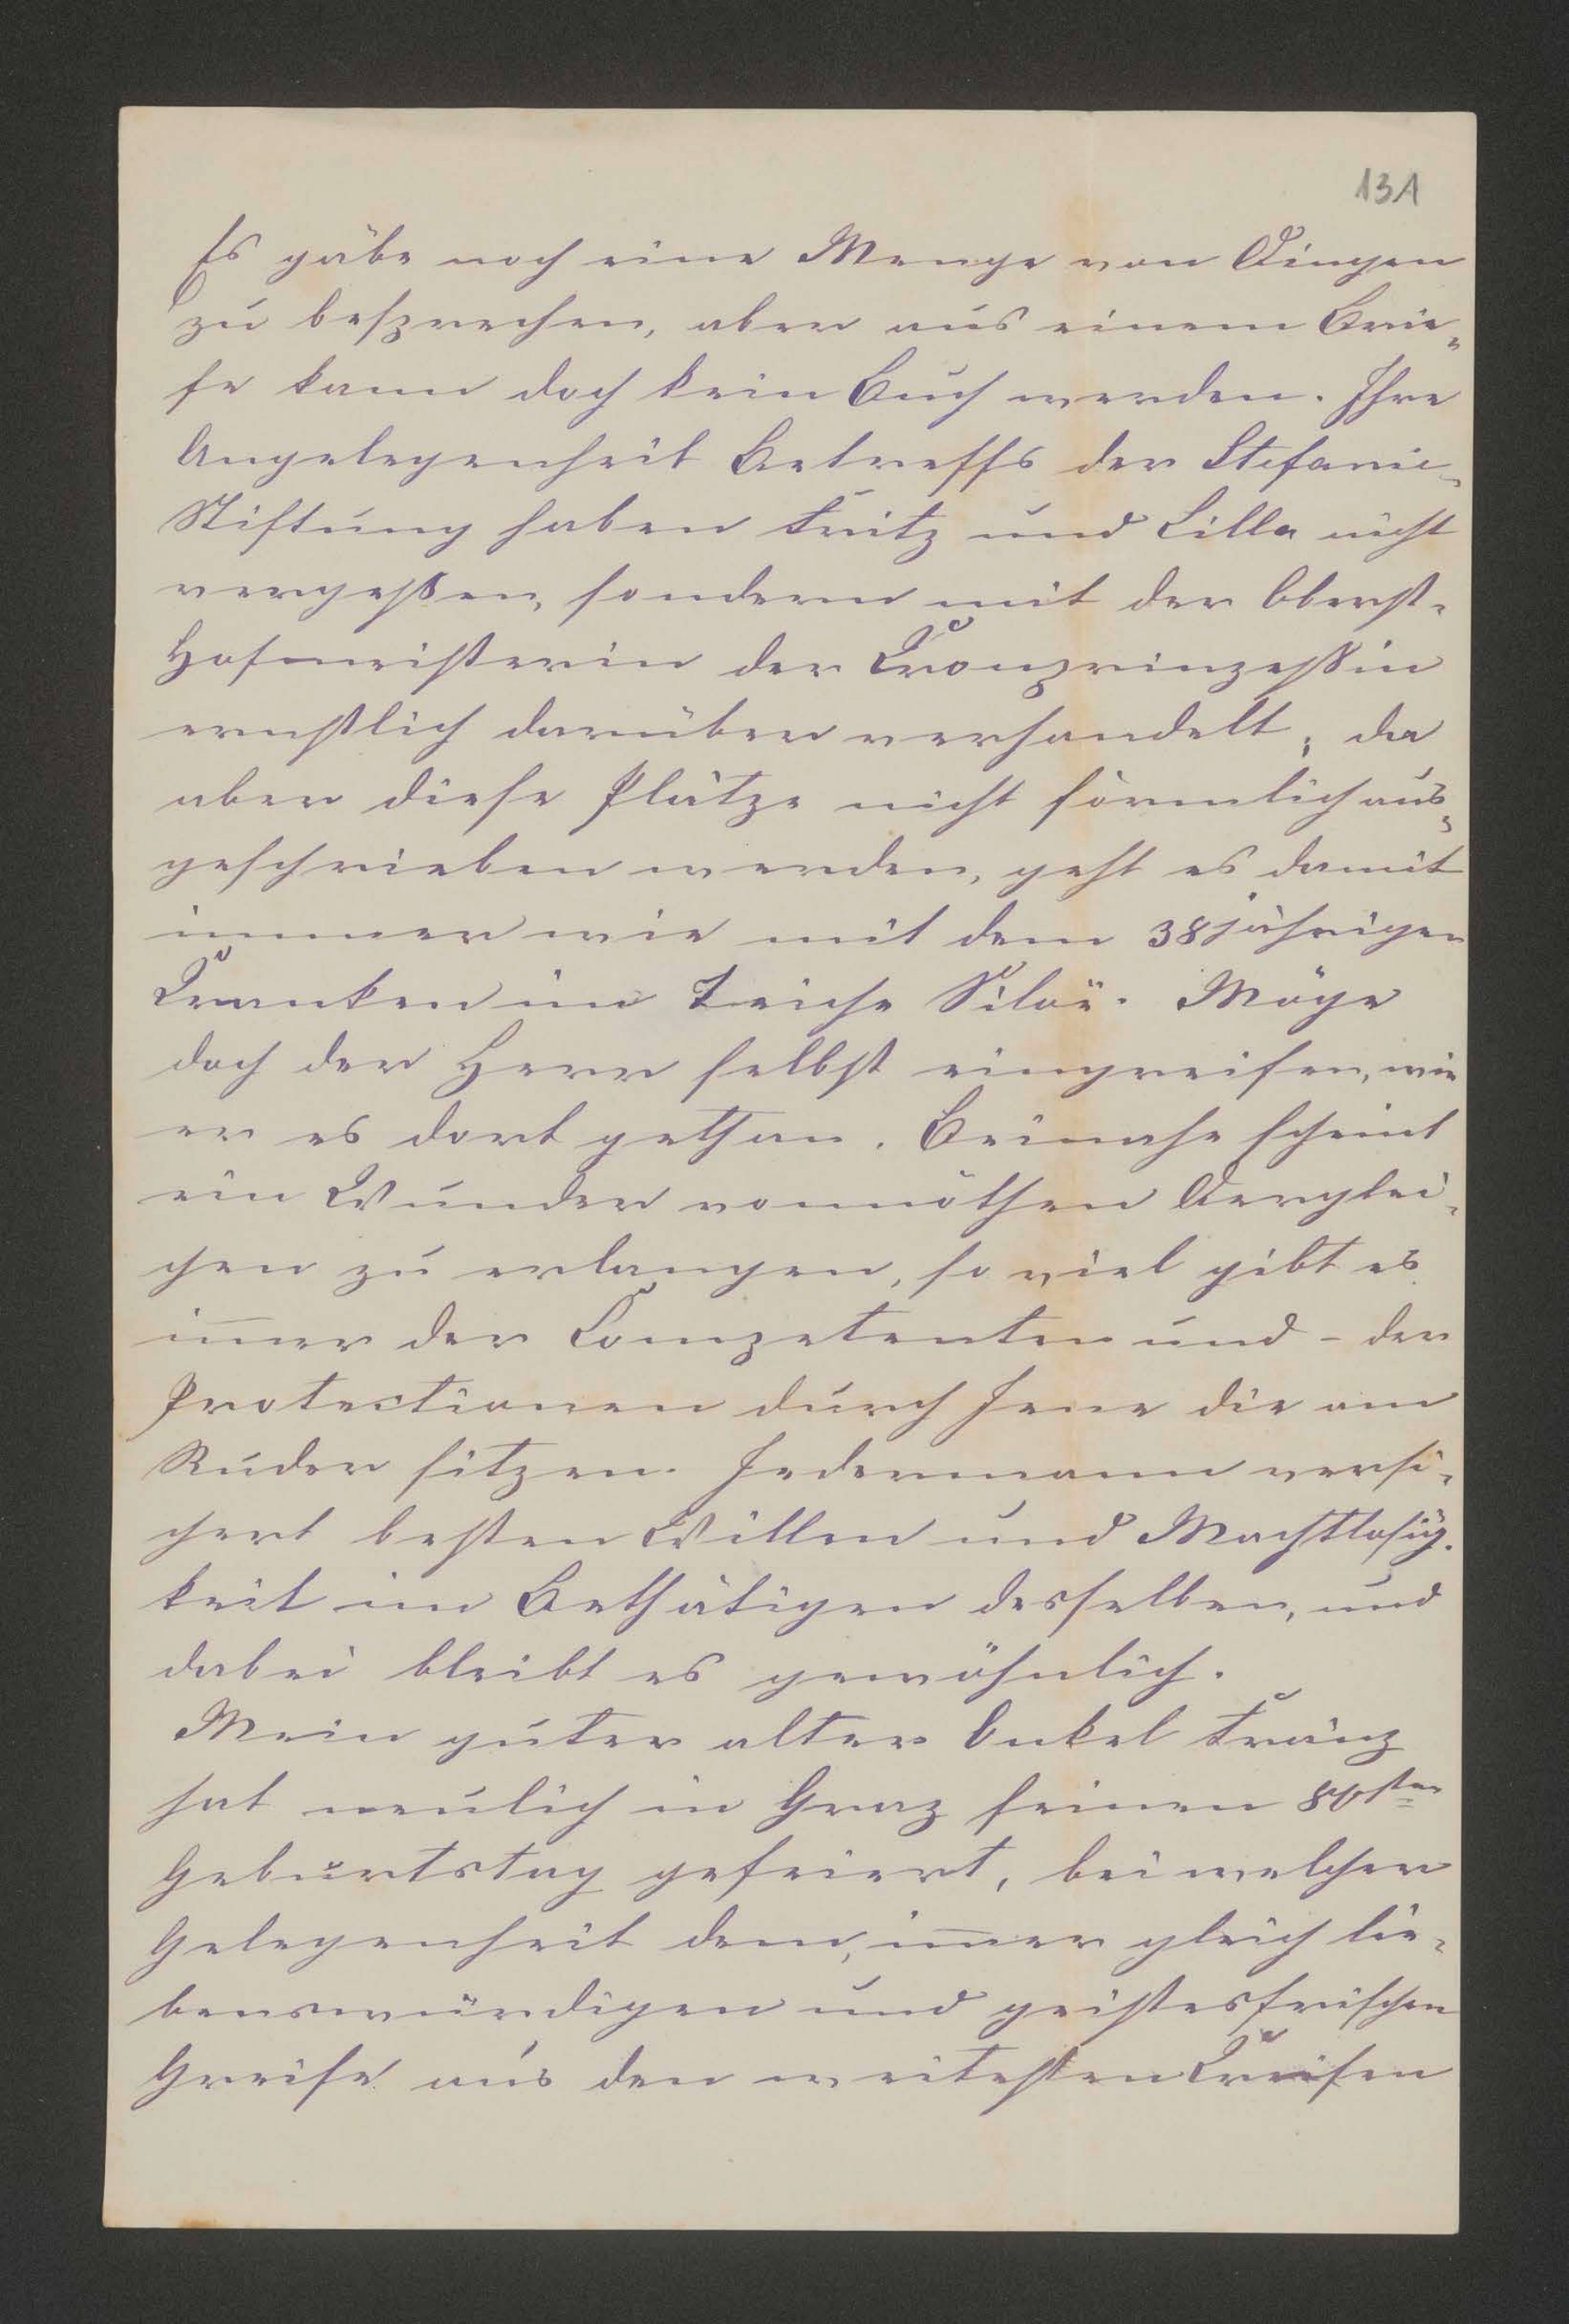 131
Es gäbe noch eine Menge von Dingen
zu besprechen, aber aus einem Brie-
fe kann doch kein Buch werden. Ihre
Angelegenheit Betreffs der Stefanie-
Stiftung haben Fritz und Lilla nicht
vergeßen, sondern mit der Oberst-
Hofmeisterin der Cronprinzeßin
ernstlich darüber verhandelt; da
aber diese Plätze nicht förmlich aus-
geschrieben werden, geht es damit
immer wie mit dem 38jährigen
Cranken im Teiche Siloë. Möge
doch der Herr selbst eingreifen, wie
er es dort gethan. Beinahe scheint
ein Wunder vonnöthen Derglei-
chen zu erlangen, so viel gibt es
im̅er der Competenten und – der
Protectionen durch Jene die am
Ruder sitzen. Jedermann versi-
chert besten Willen und Machtlosig-
keit im Bethätigen desselben, und
dabei bleibt es gewöhnlich.
Mein guter alter Onkel Franz
hat neulich in Graz seinen 80sten
Geburtstag gefeiert, bei welcher
Gelegenheit dem, im̅er gleich lie-
benswürdigen und geistesfrischen
Greise aus den weitesten Creisen